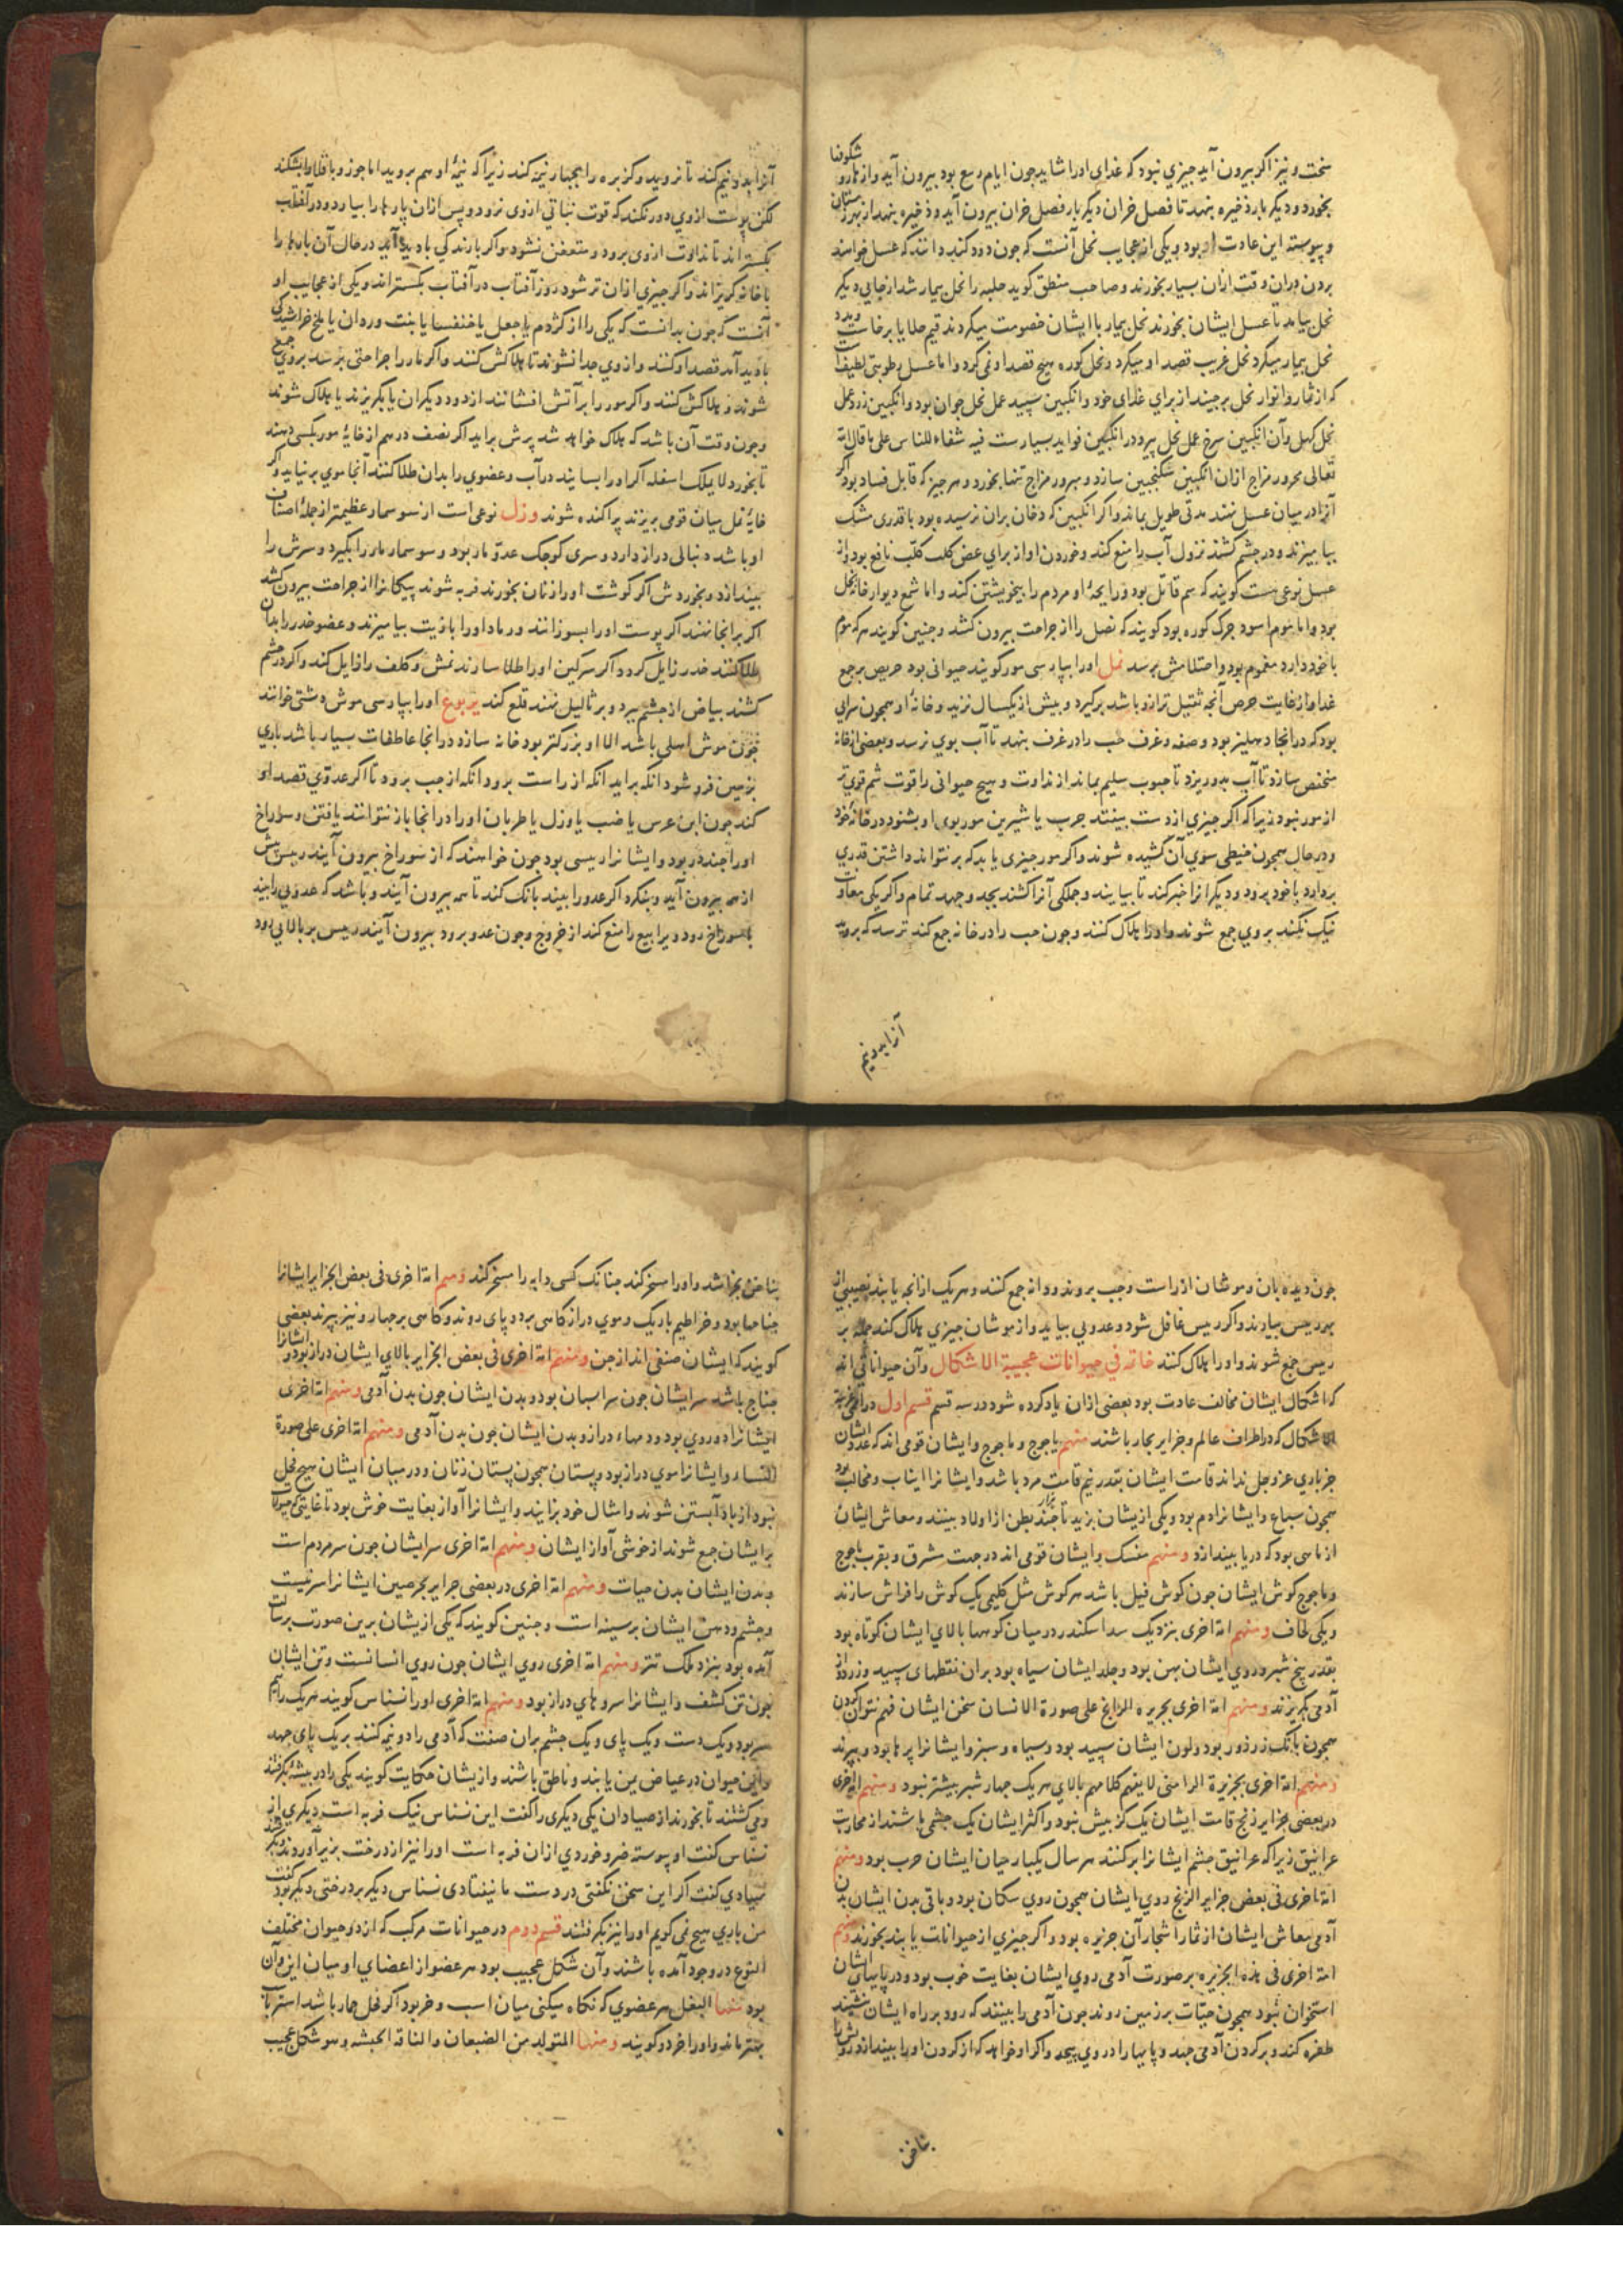 سخت و نیز اکر بیرون آید چیزی نبود که غذای اورا شاید جون ایام ربیع بود بیرون آید و از شکوفها
بخورد و دیکر بار ذخیره بنهد تا فصل خزان دیکر بار فصل خزان بیرون آید و ذخیره بنهد از بهر زمستان
و پیوسته این عادت او بود و یکی از عجایب نحل آنست که جون دود کنند و دانند که عسل خواهند
بردن دران وقت ازان بسیار بخورند و صاحب منطق کوید حلیه را نحل بیمار شد از جایی دیکر
نحل بیامد تا عسل ایشان بخورند نحل بیمار با ایشان خصومت میکردند
نحل بیمار میکرد نحل غریب قصد او میکرد و نحل کوره هیج قصد او نمی کرد و اما عسل رطوبتی لطیفست
که از ثمار و انوار نحل برجیند از برای غذای خود و انکبین سپید عمل نحل جوان بود و انکبین زرد عمل
نحل کهل و آن انکبین سرخ عمل نحل پیر و در انکبین فواید بسیارست فیه شفاء للناس علی ما قال الله
تعالی محرور مزاج ازان انکبین سکنجبین سازد و مبرور مزاج تنها بخورد و هر جیز که قابل فساد بود اکر
آنرا در میان عسل نهند مدتی طویل بماند و اکر انکبین که دخان بران نرسیده بود با قدری مشک
بیامیزند و در جشم کشند نزول آب را منع کند و خوردن او از برای عض کلب کلب نافع بود و از
عسل نوعی هست کویند که سم قاتل بود و رایحۀ او مردم را بیخویشتن کند و اما شمع دیوار خانۀ نحل
بود و اما موم اسود جرک کوره بود کویند که نصل را از جراحت بیرون کشد و جنین کویند هر که موم
با خود دارد مغموم بود و احتلامش برسد نمل اورا بپارسی مور کویند حیوانی بود حریص بر جمع
غذا و از غایت حرص آنجه ثقیل تر ازو باشد برکیرد و بیش از یکسال نزید و خانۀ او همجون سرایی
بود که در انجا دهلیز بود و صفه و غرف حب را در غرف بنهد تا آب بوی نرسد و بعضی از خانه
منخفض سازد تا آب بدو ریزد تا حبوب سلیم بماند از نداوت و هیج حیوانی را قوت شم قوی تر
از مور نبود زیرا که اکر جیزی از دست بیفتد جرب یا شیرین مور بوی او بشنود در خانۀ خود
و در حال همجون خیطی سوی آن کشیده شوند و اکر مور جیزی یابد که بر نتواند داشتن قدری
بردارد با خود برود و دیکرانرا خبر کند تا بیایند و جملکی آنرا کشند بجد و جهد تمام و اکر یکی معاونت
نیک نکند بروی جمع شوند و اورا هلاک کنند و جون حب را در خانه جمع کند ترسد که بروید
آنرا بدو نیم
آنرا بدو نیم کند تا نروید و کزبره را بجهار نیمه کند زیرا که نیمۀ او هم بروید اما جوز و باقلا را بشکند
لکن پوست ازوی دور نکند که قوت نباتی ازوی نرود و پس ازان پارها را بیارد و در آفتاب
بکستراند تا نداوت ازوی برود و متعفن نشود و اکر بارندکی بادید آید در حال آن بارها را
با خانه کریزاند و اکر جیزی ازان تر شود روز آفتاب در آفتاب بکستراند و یکی از عجایب او
آنست که جون بدانست که یکی را از کژدم یا جعل یا خنفسا یا بنت وردان یا ملخ خراشیدکی
بادید آمد قصد او کنند و ازوی جدا نشوند تا هلاکش کنند و اکر مار را جراحتی برسد بروی جمع
شوند و هلاکش کنند و اکر مور را بر آتش افشانند از دود دیکران یا بکریزند یا هلاک شوند
و جون وقت آن باشد که هلاک خواهد شد پرش براید اکر نصف درهم از خایۀ مور بکسی دهند
تا بخورد لا یملک اسفله اکر اورا بسایند در آب و عضوی را بدان طلا کنند آنجا موی برنیاید و اکر
خایۀ نمل میان قومی بریزند پراکنده شوند ورل نوعی است از سوسمار عظیمتر از جملۀ اصناف
او باشد دنبالی دراز دارد و سری کوجک عدو مار بود و سوسمار مار را بکیرد و سرش را
بیندازد و بخوردش اکر کوشت اورا زنان بخورند فربه شوند پیکانرا از جراحت بیرون کشد
اکر بر انجا نهند اکر پوست اورا بسوزانند و رماد اورا با زیت بیامیزند و عضو خدر را بدان
طلا کنند خدر زایل کردد اکر سرکین اورا طلا سازند نمش و کلف را زایل کند و اکر در جشم
کشند بیاض از جشم ببرد و بر ثالیل نهند قلع کند یربوع اورا بپارسی موش دشتی خوانند
جون موش اهلی باشد الا او بزرکتر بود خانه سازد در انجا عاطفات بسیار باشد باری
بزمین فرو شود انکه براید انکه از راست برود انکه از جب برود تا اکر عدوی قصد او
کند جون ابن عرس یا ضب یا ورل یا ظربان اورا در انجا باز نتوانند یافتن و سوراخ
اورا جند در بود و ایشانرا رییسی بود جون خواهند که از سوراخ بیرون آیند رییس پیش
از همه بیرون آید و بنکرد اکر عدو را بیند بانک کند تا همه بیرون آیند و باشد که عدوی را بیند
با سوراخ رود و یرابیع را منع کند از خروج و جون عدو برود بیرون آیند رییس بر بالایی رود
جون دیده بان و موشان از راست و جب بروند و دانه جمع کنند و هر یک از انجه یابند نصیبی از
بهر رییس بیارند و اکر رییس غافل شود و عدویی بیاید و از موشان جیزی هلاک کند جمله بر
رییس جمع شوند و اورا هلاک کنند خاتمه فی حیوانات عجیبة الاشکال و آن حیواناتی اند
که اشکال ایشان مخالف عادت بود بعضی ازان یاد کرده شود در سه قسم قسم اول در امم غریبة
الاشکال که در اطراف عالم و جزایر بحار باشند منهم یاجوج و ماجوج و ایشان قومی اند که عدد ایشان
جز باری عز و جل نداند قامت ایشان بقدر نیم قامت مرد باشد و ایشانرا انیاب و مخالب بود
همجون سباع و ایشانرا دم بود و یکی از ایشان بزید تا هزار بطن از اولاد ببیند و معاش ایشان
از ماهی بود که دریا بیندازد و منهم منسک و ایشان قومی اند در جهت مشرق و بقرب یاجوج
و ماجوج کوش ایشان جون کوش فیل باشد هر کوش مثل کلیمی یک کوش را فراش سازند
و یکی لحاف و منهم امة اخری بنزدیک سد اسکندر در میان کوهها بالای ایشان کوتاه بود
بقدر پنج شبر و روی ایشان پهن بود و جلد ایشان سیاه بود بران نقطهای سپید و زرد و از
آدمی بکریزند و منهم امة اخری بجزیره الرانج علی صورة الانسان سخن ایشان فهم نتوان کردن
همجون بانک زرزور بود و لون ایشان سپید بود و سیاه و سبز و ایشانرا پرها بود و بپرند
و منهم امة اخری بجزیرة الرامنی لا یفهم کلامهم بالای هر یک جهار شبر بیشتر نبود و منهم امة اخری
در بعضی جزایر زنج قامت ایشان یک کز بیش نبود و اکثر ایشان یک جشمی باشند از محاربت
غرانیق زیرا که غرانیق جشم ایشانرا برکنند هر سال یکبار میان ایشان حرب بود و منهم
امة اخری فی بعض جزایر الزنج روی ایشان همجون روی سکان بود و باقی بدن ایشان بدن
آدمی معاش ایشان از ثمار اشجار آن جزیره بود و اکر جیزی از حیوانات یابند بخورند و منهم
امة اخری فی هذه الجزیره بر صورت آدمی روی ایشان بغایت خوب بود و در پایهای ایشان
استخوان نبود همجون حیات بر زمین روند جون آدمی را ببینند که رود بر راه ایشان نشیند
طفره کند و بر کردن آدمی جهد و پایها را در وی پیجد و اکر او خواهد که از کردن اورا بیندازد رویش را
بناخن
بناخن بخراشد و اورا مسخر کند جنانک کسی دابه را مسخر کند و منهم امة اخری فی بعض الجزایر ایشانرا
جناحها بود و خراطیم باریک و موی دراز کاهی بر دو پای روند و کاهی بر جهار و نیز بپرند بعضی
کویند که ایشان صنفی اند از جن و منهم امة اخری فی بعض الجزایر بالای ایشان دراز بود و ایشانرا
جناح باشد سر ایشان جون سر اسبان بود و بدن ایشان جون بدن آدمی و منهم امة اخری
ایشانرا دو روی بود و دمهاء دراز و بدن ایشان جون بدن آدمی و منهم امة اخری علی صورة
النساء و ایشانرا موی دراز بود و پستان همجون پستان زنان و در میان ایشان هیج فحل
نبود از باد آبستن شوند و امثال خود بزایند و ایشانرا آواز بغایت خوش بود تا غایتی که حیوانات
بر ایشان جمع شوند از خوشی آواز ایشان و منهم امة اخری سر ایشان جون سر مردم است
و بدن ایشان بدن حیات و منهم امة اخری در بعضی جزایر بحر صین ایشانرا سر نیست
و جشم و دهن ایشان بر سینه است و جنین کویند که یکی از ایشان برین صورت برسالت
آمده بود بنزد ملک تتر و منهم امة اخری روی ایشان جون روی انسانست و تن ایشان
جون تن کشف و ایشانرا سروهای دراز بود و منهم امة اخری اورا نسناس کویند هر یک را نیم
سر بود و یک دست و یک پای و یک جشم بران صفت که آدمی را دو نیم کنند بر یک پای جهد
و این حیوان در غیاض یمن یابند و ناطق باشند و از ایشان حکایت کویند یکی را در بیشۀ بکرفتند
و می کشتند تا بخورند از صیادان یکی دیکری را کفت این نسناس نیک فربه است دیکری از
نسناس کفت او پیوسته ضرو خوردی ازان فربه است اورا نیز از درخت بزیر آوردند
صیادی کفت اکر این سخن نکفتی در دست ما نیفتادی نسناس دیکر بر درختی دیکر بود کفت
من باری هیج نمی کویم اورا نیز بکرفتند قسم دوم در حیوانات مرکب که از دو حیوان مختلف
النوع در وجود آمده باشند و آن شکل عجیب بود هر عضو از اعضای او میان این و آن
بود منها البغل هر عضوی که نکاه میکنی میان اسب و خر بود اکر فحل حمار باشد استر باسب
بهتر ماند و اورا خردو کویند و منها المتولد من الضبعان و الناقة الحبشه و هو شکل عجیب